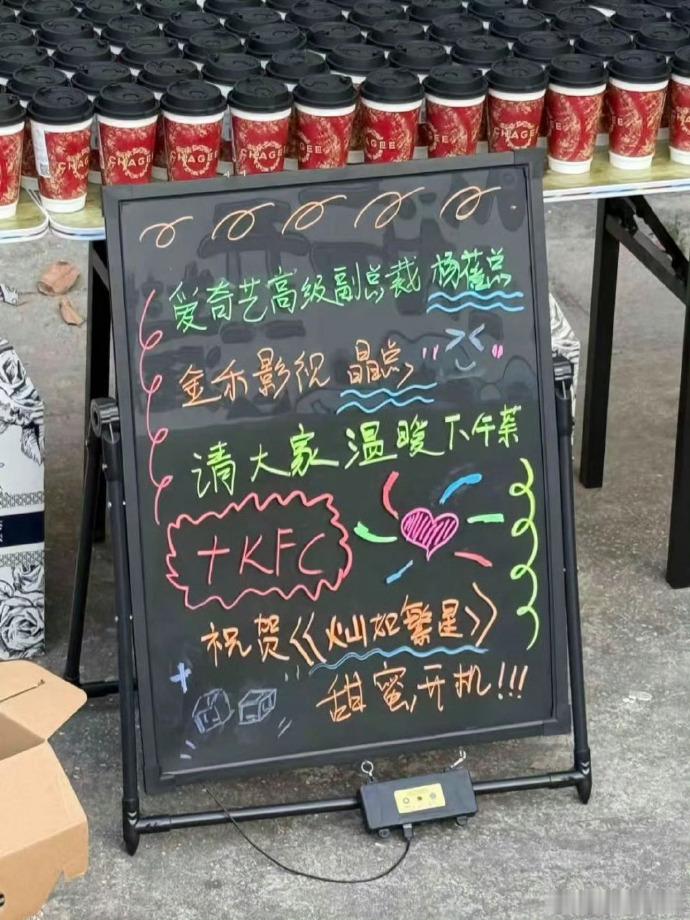 CHAGEE CHAGEE CHAGEE CHAGEE
爱奇艺高级副总裁 杨蓓总
金禾影视 晶总
请大家温暖下午茶
+KFC
祝贺《灿如繁星》
甜蜜开机!!!